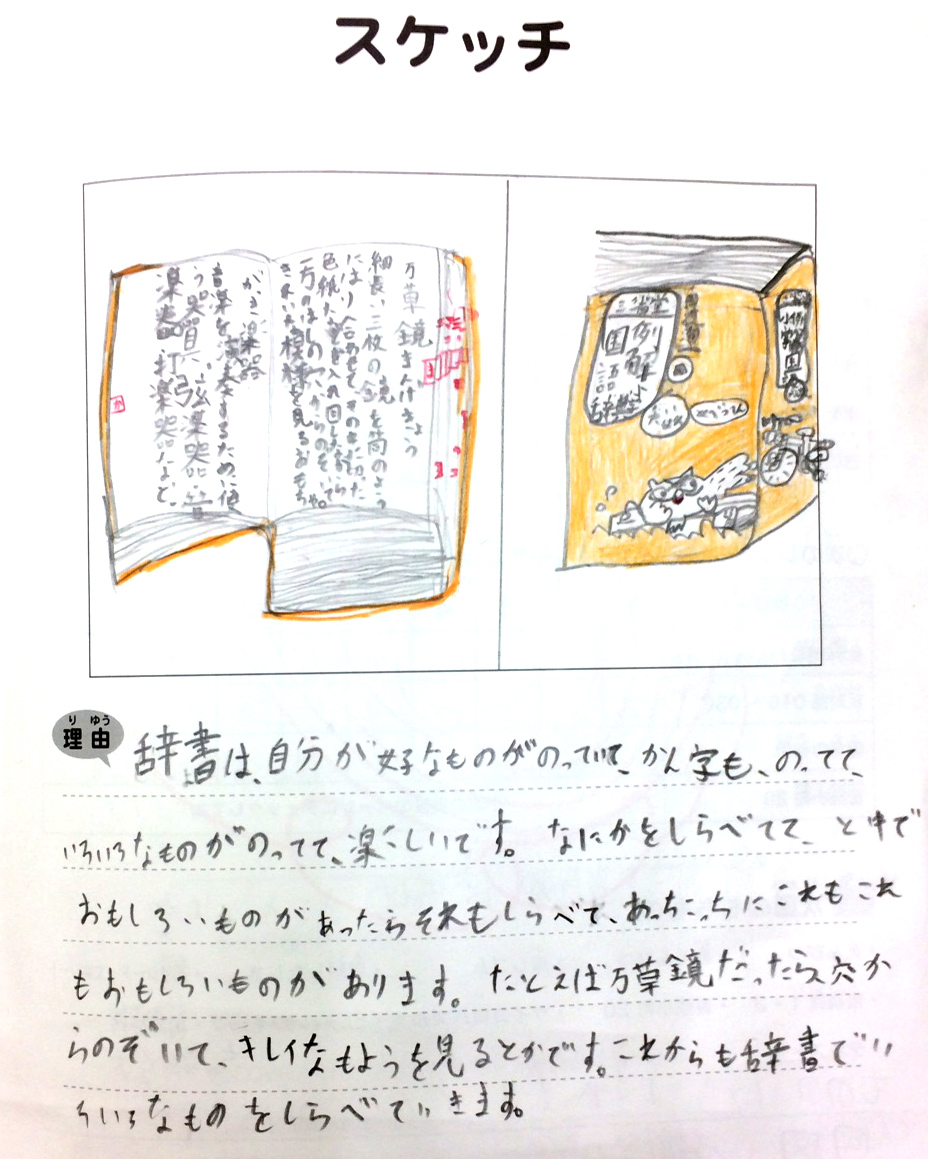 スケッチ
万草鏡まんげきょう
細長い三枚の鏡を筒のよう
にはり合わせて、その中に切った
色紙などを入れ、回しながら
一方のはしの穴からのぞいて
きれいな模様を見るおもちゃ。
がっき楽器
音楽を演奏するために使
う器具。弦楽器、管
楽器、打楽器など。
三省堂
例解小学
国語
辞典
三省堂
例解
国語
りゆう
理由
辞書は、自分が好なものがのっていて、かん字も、のってて、
いろいろなものがのってて、楽しいです。なにかをしらべてて、と中で
おもしろいものがあったらそれもしらべて、あっちこっちにこれもこれ
もおもしろいものがあります。たとえば万草鏡だったら穴か
らのぞいて、キレイなもようを見るとかです。これからも辞書でい
ろいろなものをしらべていきます。